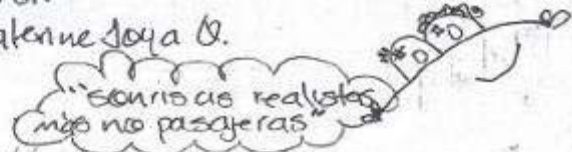 Joya Q.
"sonrisas realistas
más no pasajeras"